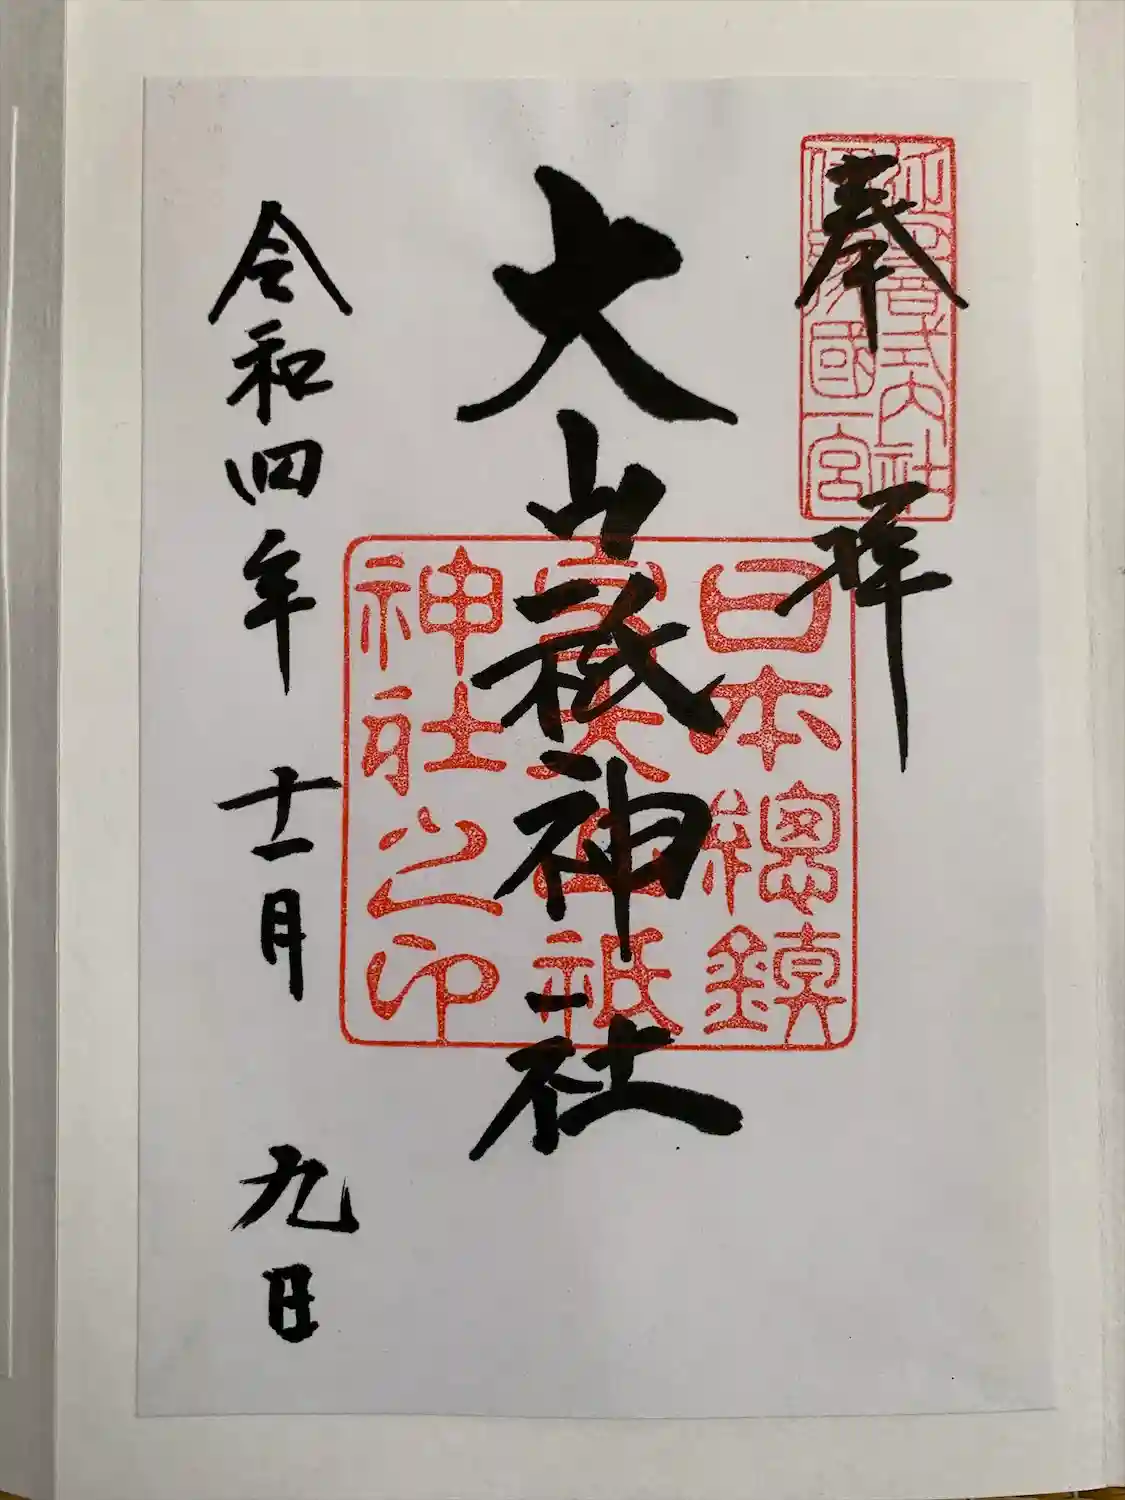 奉拝
延喜式内社
伊豫國一宮
大山祇神社
日本總鎮
守大山祇
神社之印
令和四年十一月九日